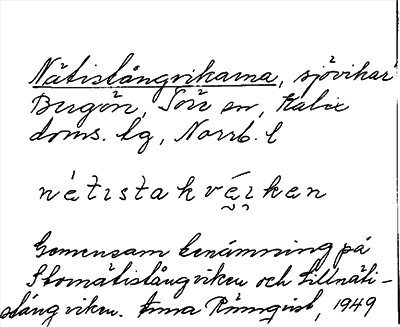 Nätistångvikarna, sjövikar
Bergön, Töre sn, Kalix
doms. lg, Norrb. l
nètistakvéi̯ken
Gemensam benämning på
Stornätistångviken och Lillnäti-
stångviken. Anna Rönnqvist, 1949